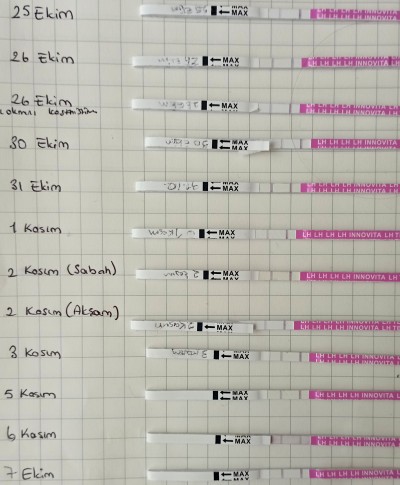 25 Ekim
MAX
LH LH LH LH INNOVITA
26 Ekim
MAX
MAX
LH LH LH LH INNOVITA
26 Ekim
MAX
MAX
LH LH LH LH INNOVITA
30 Ekim
MAX
MAX
LH LH LH LH INNOVITA
31 Ekim
31.10.
MAX
MAX
LH LH LH LH INNOVITA
1 Kasım
MAX
LH LH LH LH INNOVITA LH
2 Kasım (Sabah)
2 Kasım
MAX
MAX
LH LH LH LH INNOVITA
2 Kasım (Akşam)
MAX
LH LH LH LH INNOVITA LH
3 Kasım
MAX
MAX
LH LH LH LH INNOVITA
5 Kasım
MAX
MAX
LH LH LH LH INNOVITA
6 Kasım
MAX
MAX
LH LH LH LH INNOVITA
7 Ekim
MAX
MAX
LH LH LH LH INNOVITA